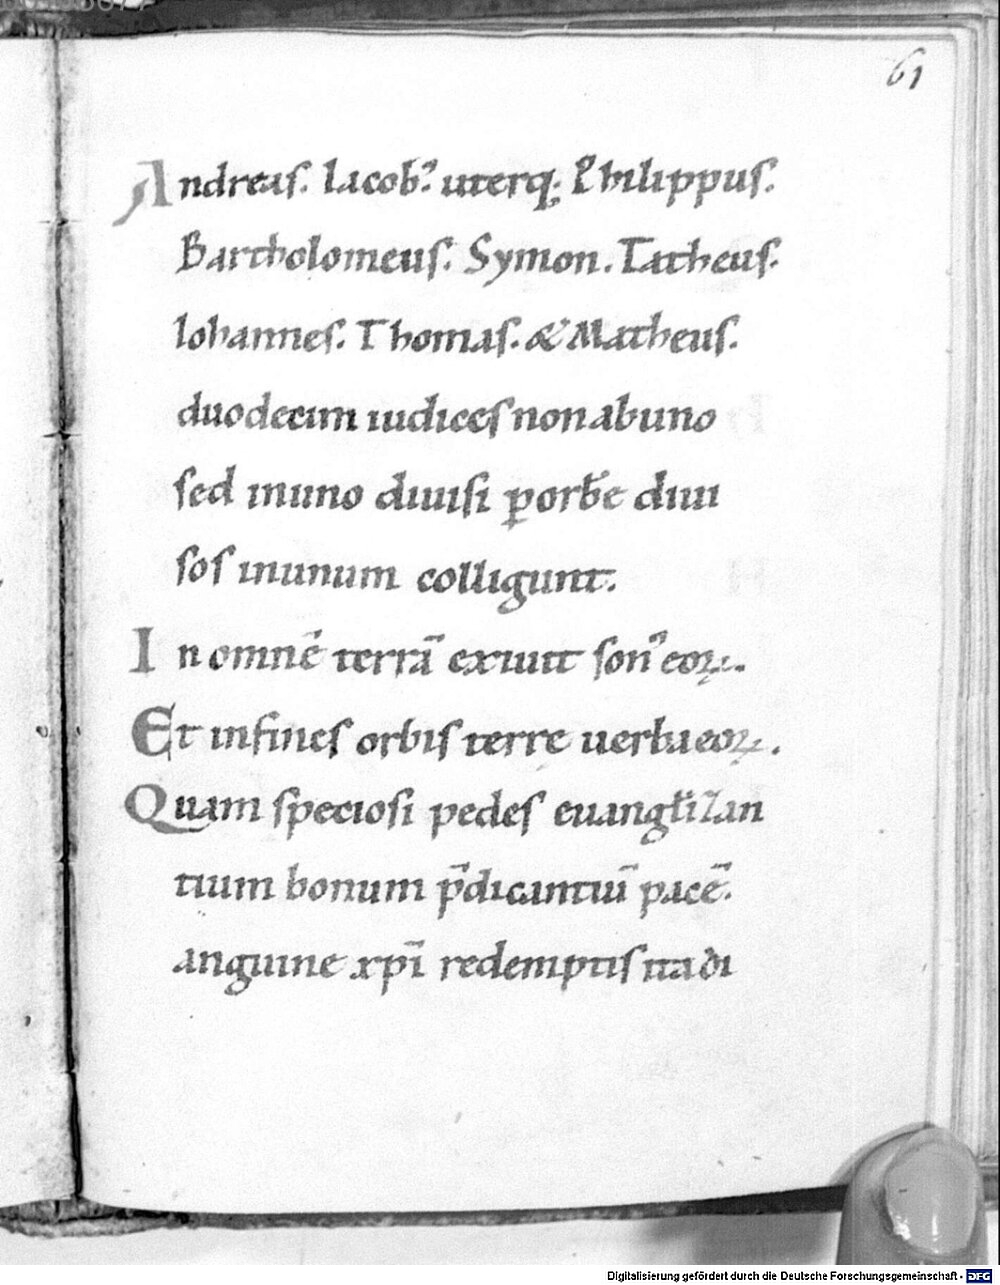 61
Andreas. Iacob᾽. uterq; Philippus.
Bartholomeus. Symon. Tatheus.
Iohannes. Thomas. & Matheus.
duodecim iudices non ab uno
sed in uno diuisi ꝑ orbē diui
sos in unum colligunt.
In omnē terrā exiuit son᾽ eoꝝ.
Et in fines orbis terre uerba eoꝝ.
Quam speciosi pedes euangłizan
tium bonum p̄dicantiū pacē.
anguine xp̄i redemptis ita di
Digitalisierung gefördert durch die Deutsche Forschungsgemeinschaft - DFG